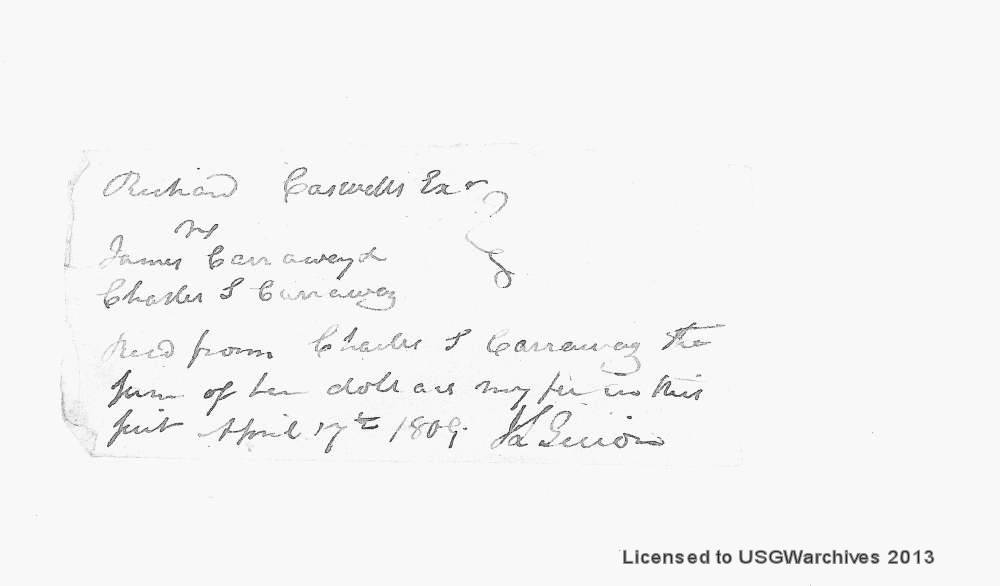 Richard Caswells Exr
vs
James Carraway &
Charles S Carraway
Recd from Charles S Carraway the
sum of ten dollars my fee in this
suit April 17th 1809.
Licensed to USGWarchives 2013